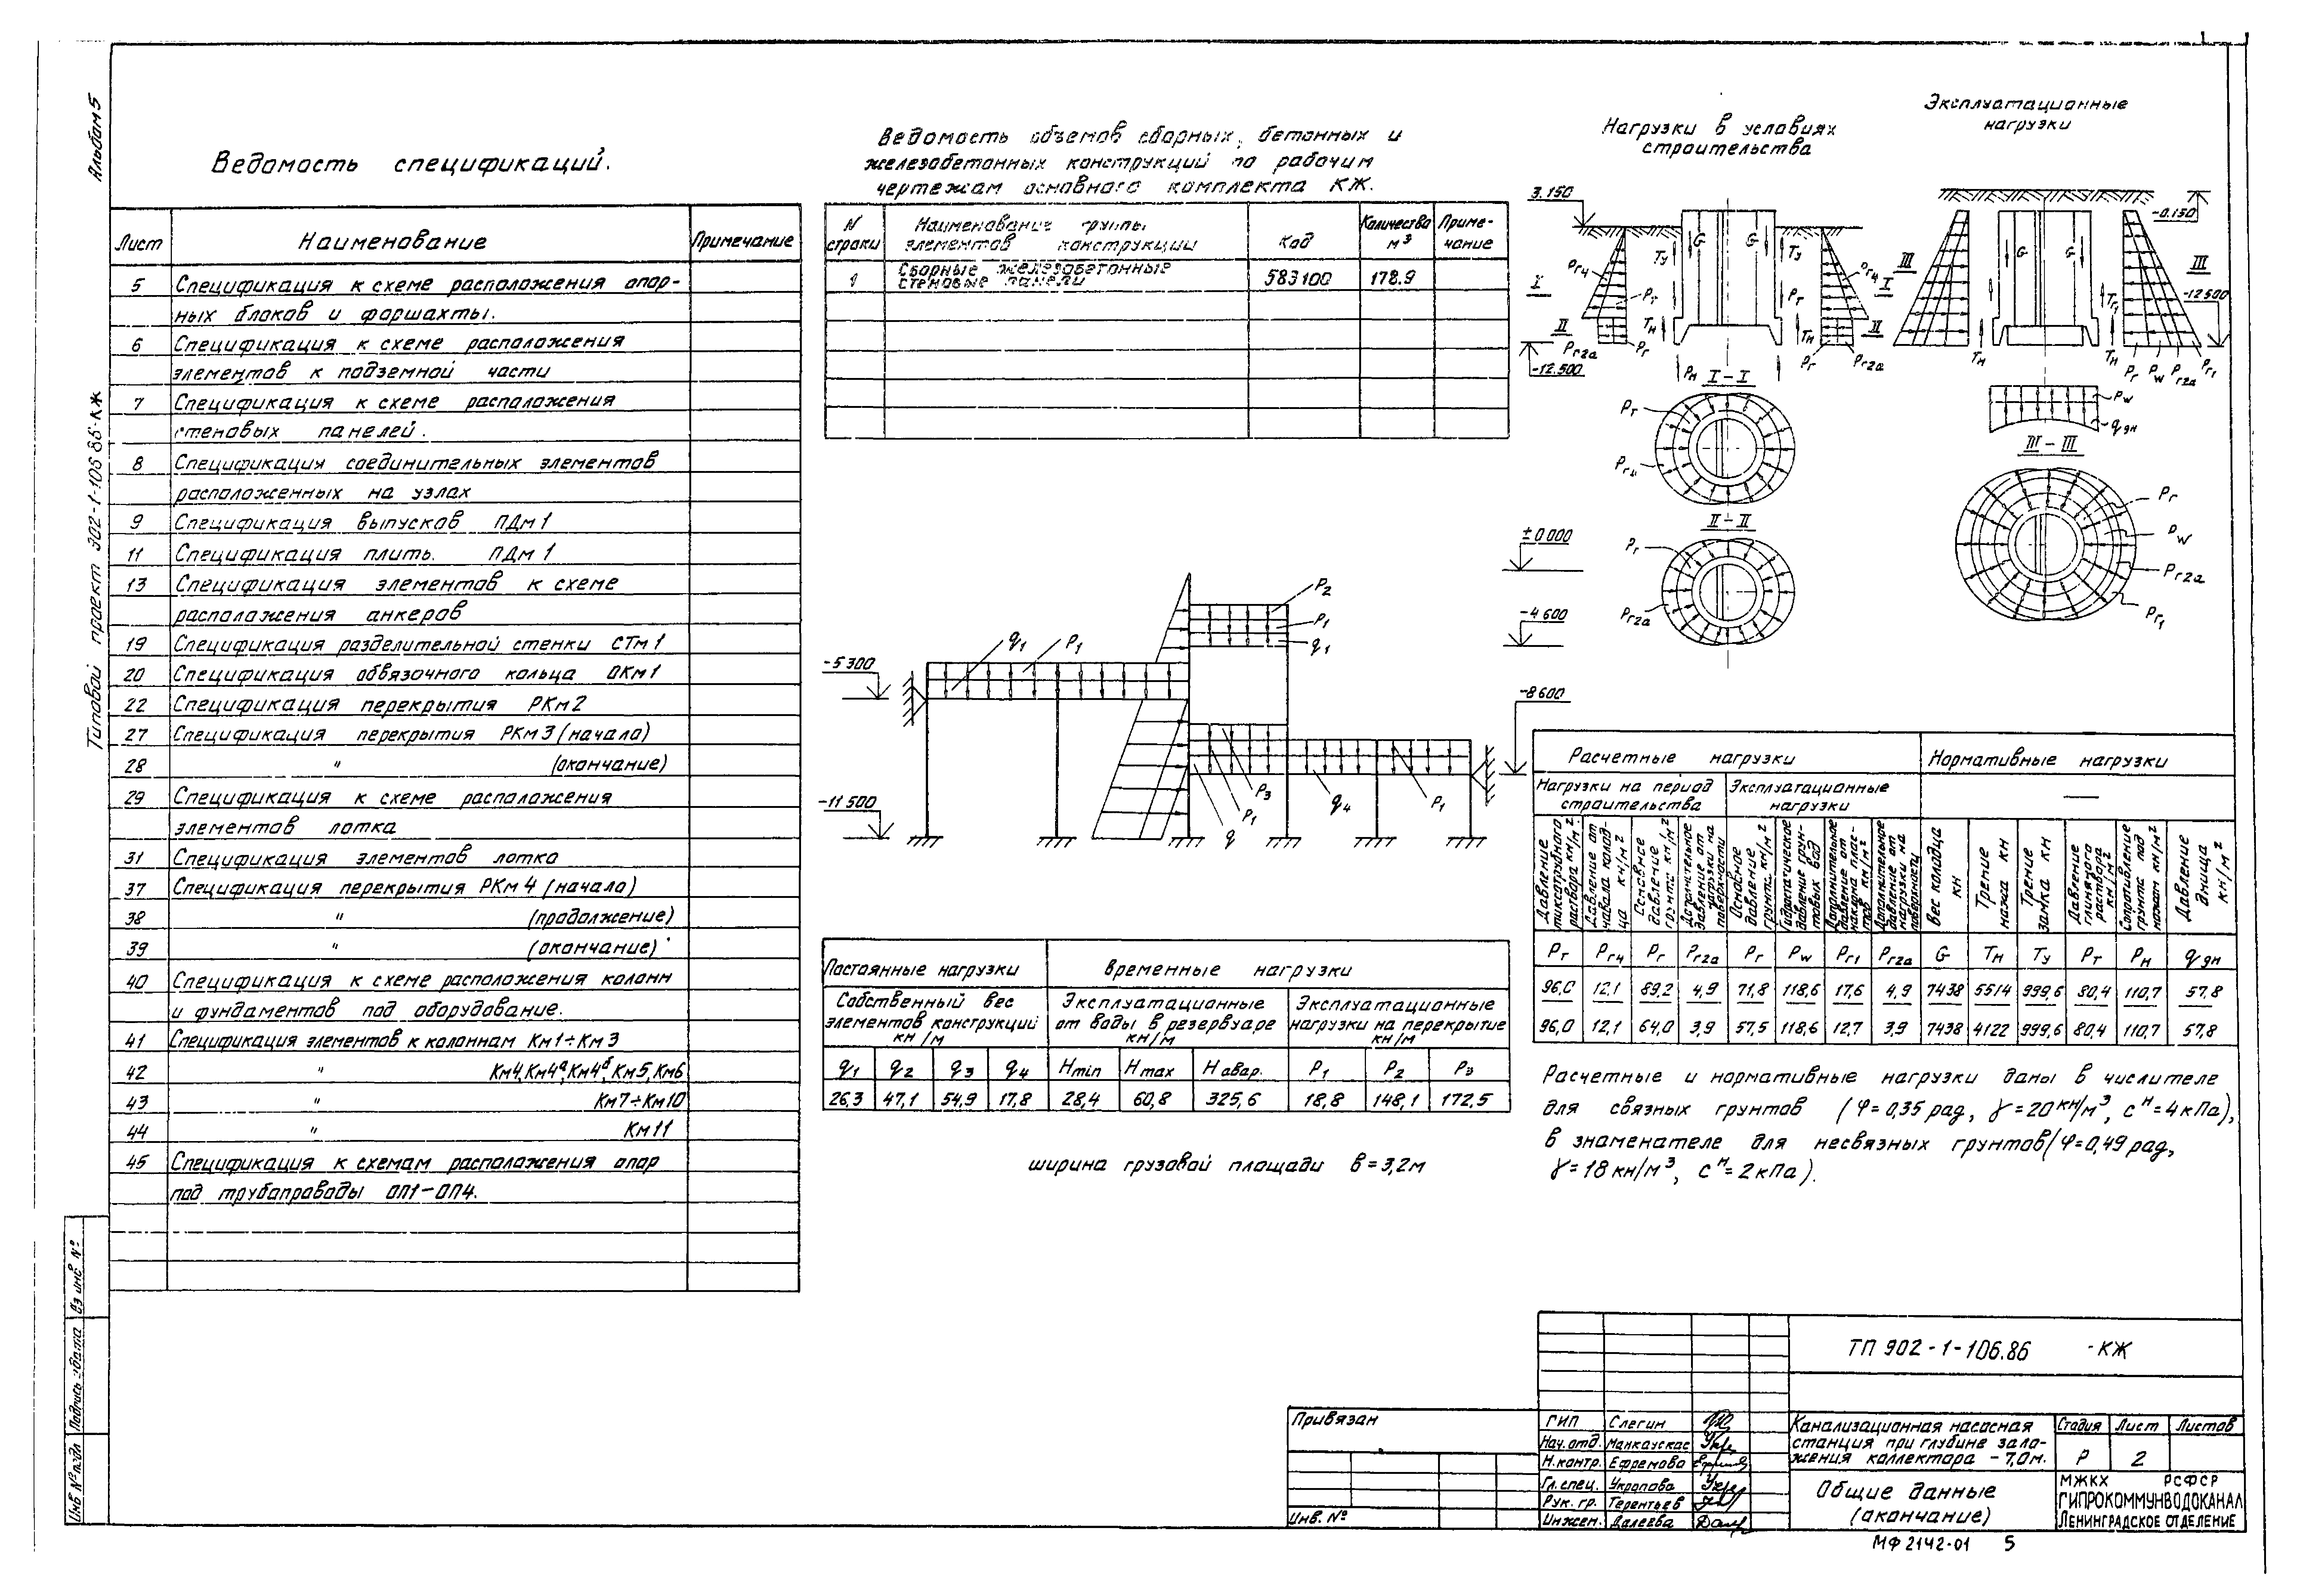 Альбом 5
Типовой проект 902-1-106.86-КЖ
Ведомость спецификаций.
Лист Наименование Примечание
5 Спецификация к схеме расположения опор-
ных блоков и форшахты.
6 Спецификация к схеме расположения
элементов к подземной части
7 Спецификация к схеме расположения
стеновых панелей.
8 Спецификация соединительных элементов
расположенных на узлах
9 Спецификация выпусков ПДм1
11 Спецификация плиты. ПДм1
13 Спецификация элементов к схеме
расположения анкеров
19 Спецификация разделительной стенки СТм1
20 Спецификация обвязочного кольца ОКм1
22 Спецификация перекрытия РКм2
27 Спецификация перекрытия РКм3 (начало)
28 " (окончание)
29 Спецификация к схеме расположения
элементов лотка
31 Спецификация элементов лотка
37 Спецификация перекрытия РКм4 (начало)
38 " (продолжение)
39 " (окончание)
40 Спецификация к схеме расположения колонн
и фундаментов под оборудование.
41 Спецификация элементов к колоннам Км1÷Км3
42 " Км4, Км4а, Км4б, Км5, Км6
43 " Км7÷Км10
44 " Км11
45 Спецификация к схемам расположения опор
под трубопроводы ОП1-ОП4.
Ведомость объемов сборных, бетонных и
железобетонных конструкций по рабочим
чертежам основного комплекта КЖ.
N строки Наименование группы элементов конструкции Код Количество м³ Приме-чание
1 Сборные железобетонные стеновые панели 583100 178.9
Нагрузки в условиях
строительства
Эксплуатационные
нагрузки
3.150
-12.500
-0.150
-12500
G G
Tу Tу
Pг4 Pг4
Pт Pт
Tн Tн
Pг Pг
Pг2а Pг2а
Pн
I I
II II
III III
Tн Tн Tт
Pг Pw Pг2а Pг1
I-I
Pт
Pг4
II-II
Pг
Pг2а
Pw
qдн
III-III
Pг
Pw
Pг2а
Pг1
±0.000
-4600
-8600
-5300
-11500
q1 P1
P2
P1
q1
P3
P1
q
q4
P1
Постоянные нагрузки Временные нагрузки
Собственный вес элементов конструкций кн/м
Эксплуатационные от воды в резервуаре кн/м
Эксплуатационные нагрузки на перекрытие кн/м
q1 q2 q3 q4 Hmin Hmax Hавар. P1 P2 P3
26,3 47,1 54,9 17,8 28,4 60,8 325,6 18,8 148,1 172,5
ширина грузовой площади в=3,2м
Расчетные нагрузки Нормативные нагрузки
Нагрузки на период строительства Эксплуатационные нагрузки —
Давление тиксотропного раствора кн/м²
Давление от навала колодца кн/м²
Основное давление грунта кн/м²
Дополнительное давление от нагрузки на поверхности
Основное давление грунта кн/м²
Гидростатическое давление грунтовых вод
Дополнительное давление от накрена пластов кн/м²
Дополнительное давление от нагрузки на поверхность
Вес колодца кн
Трение ножа кн
Трение замка кн
Давление глиняного раствора кн/м²
Сопротивление грунта под ножом кн/м²
Давление днища кн/м²
Pт Pг4 Pг Pг2а Pг Pw Pг1 Pг2а G Tн Tу Pт Pн qдн
96,0 12,1 89,2 4,9 71,8 118,6 17,6 4,9 7438 5514 999,6 80,4 110,7 57.8
96,0 12,1 64,0 3,9 57,5 118,6 12,7 3,9 7438 4122 999,6 80,4 110,7 57,8
Расчетные и нормативные нагрузки даны в числителе
для связных грунтов (φ=0,35 рад, γ=20кн/м³, сн=4кПа),
в знаменателе для несвязных грунтов (φ=0,49 рад,
γ=18кн/м³, сн=2кПа).
ТП 902-1-106.86 -КЖ
Привязан
Инв. №
ГИП Слегин
Нач.отд. Манкаускас
Н.контр. Ефремова
Гл.спец. Укропова
Рук. гр. Терентьев
Инжен. Далеева
Канализационная насосная
станция при глубине зало-
жения коллектора -7,0м.
Стадия Лист Листов
Р 2
Общие данные
(окончание)
МЖКХ РСФСР
ГИПРОКОММУНВОДОКАНАЛ
ЛЕНИНГРАДСКОЕ ОТДЕЛЕНИЕ
МФ 2142-01 5
Инв № подл Подпись и дата Вз инв №